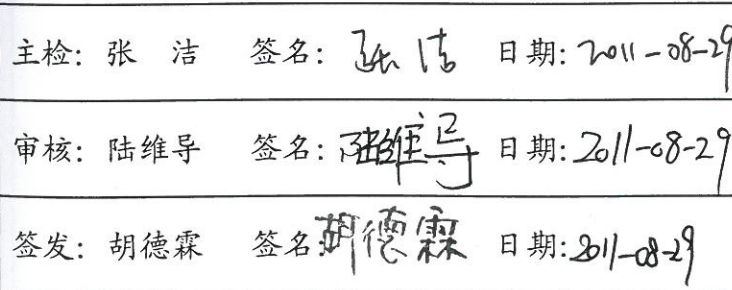 主检: 张 洁 签名: 张洁 日期: 2011-08-29
审核: 陆维导 签名: 陆维导 日期: 2011-08-29
签发: 胡德霖 签名: 胡德霖 日期: 2011-08-29